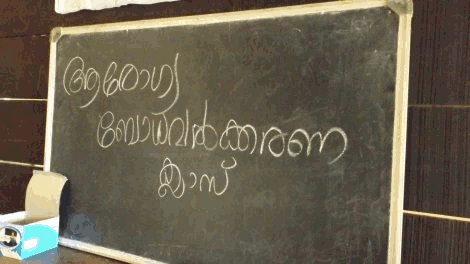 ആരോഗ്യ
ബോധവൽക്കരണ
ക്ലാസ്